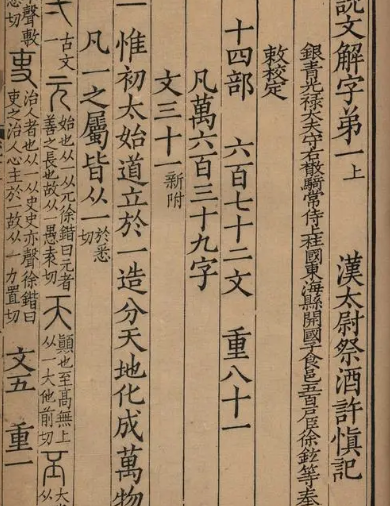 說文解字弟一上 漢太尉祭酒許慎記
銀青光祿大夫守右散騎常侍上柱國東海縣開國子食邑五百戶臣徐鉉等奉
敕校定
十四部 六百七十二文 重八十一
凡萬六百三十九字
文三十一新附
一 惟初太始道立於一造分天地化成萬物
凡一之屬皆从一於悉切
弌 古文一 元 始也从一从兀徐鍇曰元者善之長也故从一愚袁切 天 顛也至高無上从一大他前切 丕 大
聲敷悲切 吏 治人者也从一从史史亦聲徐鍇曰吏之治人心主於一故从一力置切 文五 重一